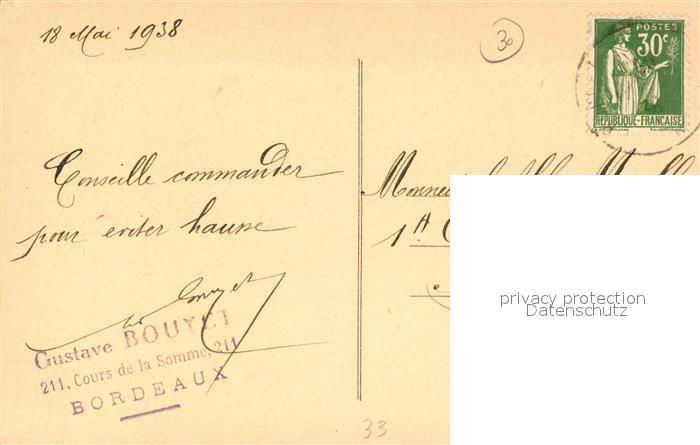 18 Mai 1938
30
POSTES
30c
RÉPUBLIQUE-FRANÇAISE
Conseille commander
pour éviter hausse
Bouyet
Gustave BOUYET
211, Cours de la Somme, 211
BORDEAUX
Monsieur
1
privacy protection
Datenschutz
33